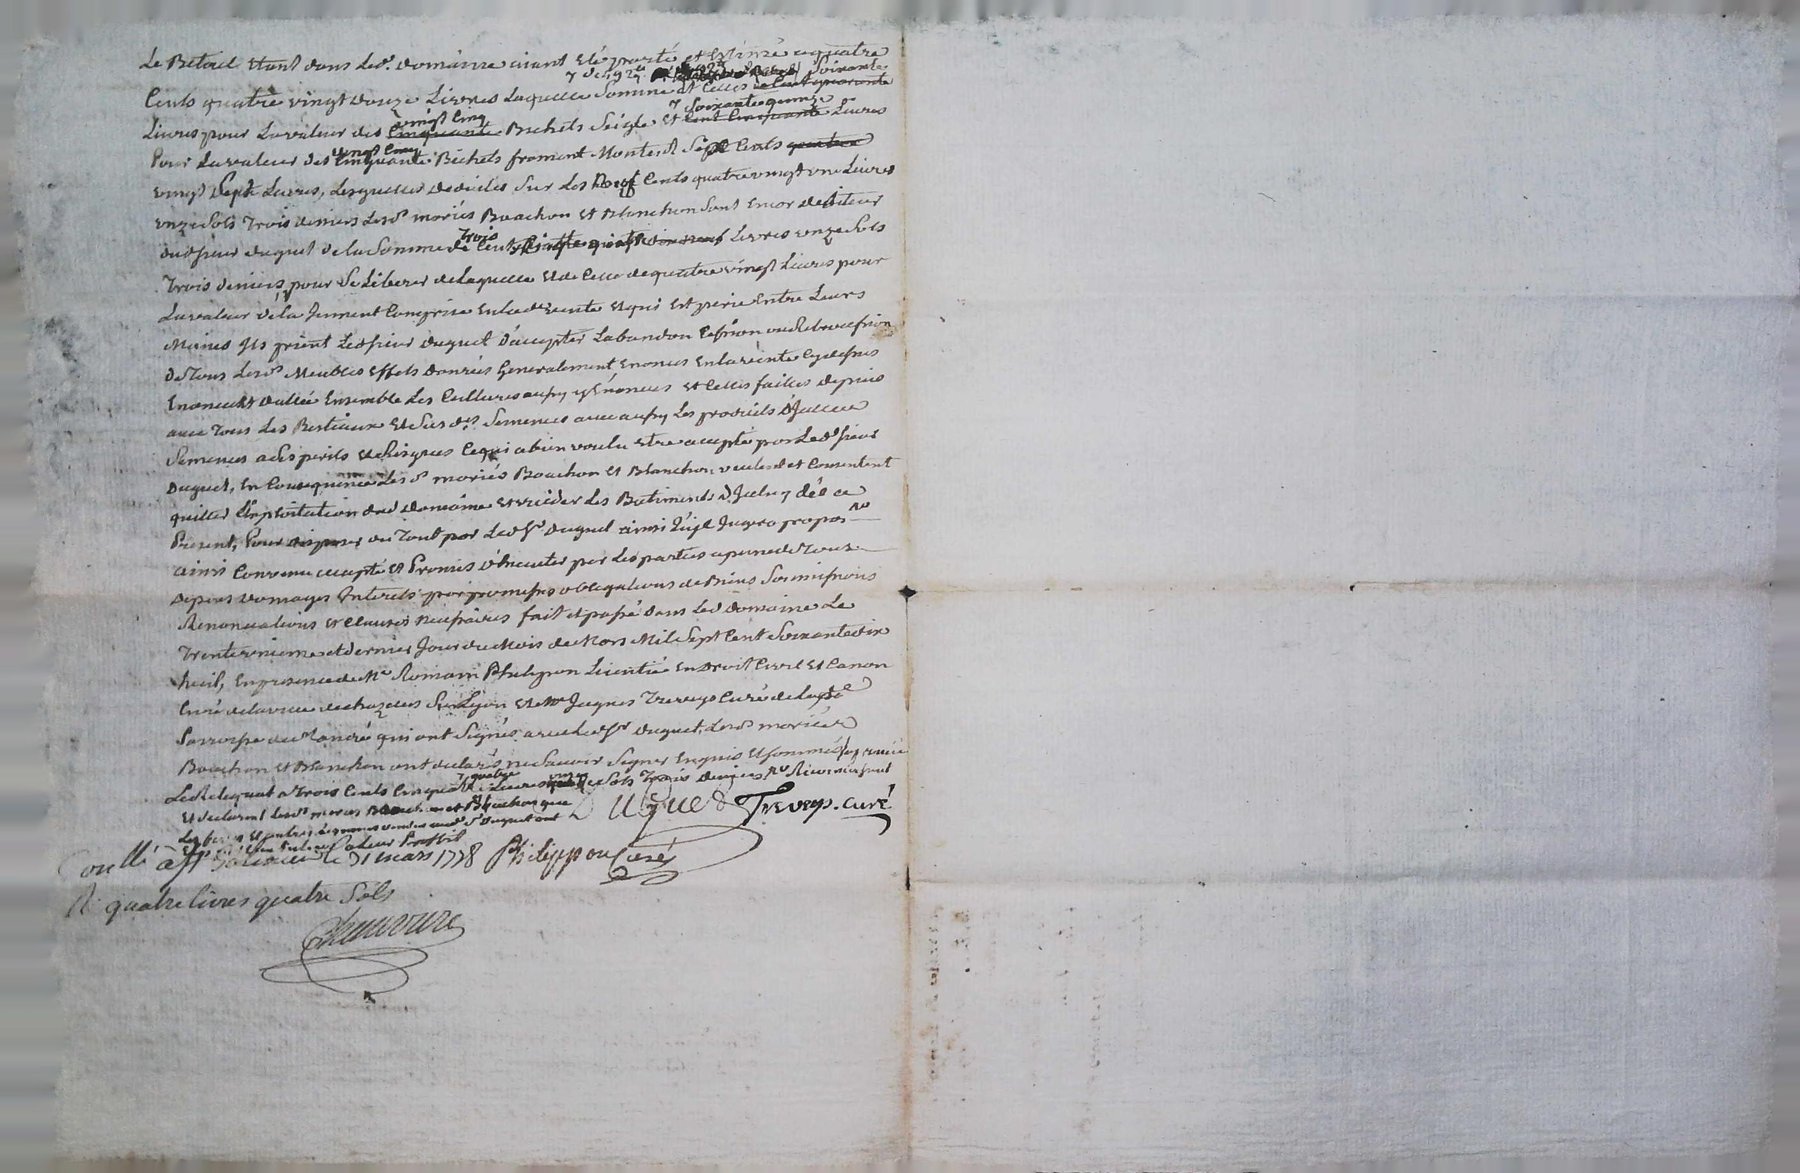 Le Betail Etant dans led. domaine aiant eté porté et Estimé a quatre
Cents quatre vingt douze Livres Laquelle Somme et Celles de Cent quarante Soixante
Livres pour La valeur des Cinquante vingt Cinq Bichets Seigle et Cent Cinquante Soixante quinze Livres
Pour La valeur des Cinquante vingt Cinq Bichets froment Monte à Sept Cents
vingt Sept Livres, Lesquelles deduites Sur Les Neuf Cents quatre vingt une Livres
onze Sols Trois deniers Lesd. mariés Bouchon Et Blanchon Sont Encor debiteur
dud sieur duguet de la Somme de Trois Cents Livres onze Sols
Trois deniers, pour Se Liberer de Laquelle Et de Celle de quatre vingt Livres pour
La valeur de la Jument Comprise En lad vente Et qui Est perie Entre Leurs
Mains Ils prient Led sieur duguet d'accepter L'abandon Cession ou Retrocession
de Tous Lesd. Meubles Effets danrées Generalement Enoncés En la vente Cy dessus
Enoncée Et dattée Ensemble des Cultures aussy y Enoncées et Celles faites depuis
avec Tous Les Bestiaux Et Sur Semences avec aussy Les produits d'Icelle
Semences a Ses perils et Risques Ce qui a bien voulu Etre accepté par Led sieur
Duguet, En Consequence Lesd. mariés Bouchon Et Blanchon veulent et Consentent
quitter L'Exploitation dud domaine Et vuider Les Batiments d'Iceluy dès ce
Present, Pour disposer du Tout par Led Sr Duguet ainsi qu'il Jugera a propos
ainsi Convenu accepté Et Promis d'Executer par Les parties a peine de Tous
depens domages Interets par promesses obligations de Biens Soumissions
Renonciations Et Clauses necessaires fait et passé dans Led domaine Le
Trente unieme et dernier Jour du Mois de Mars Mil Sept Cent Soixante dix
huit, En presence de Me Romain Philippon Licentié En Droit Civil Et Canon
Curé de la ville de chazelles Sur Lyon Et Me Jaques Treveys Curé de
Parroisse de St andré qui ont Signés avec Led Sr Duguet, Lesd. mariés
Bouchon Et Blanchon ont declarés ne Sçavoir Signer Enquis Et Sommés
Le Reliquat a Trois Cents Cinquante quatre Livres onze Sols Trois deniers
Et declarent Lesd. mariés Bouchon et Blanchon que
Duguet Treveys. curé
Coullé à St Galmier le 31 mars 1778 Philippon Curé
R. quatre livres quatre Sols